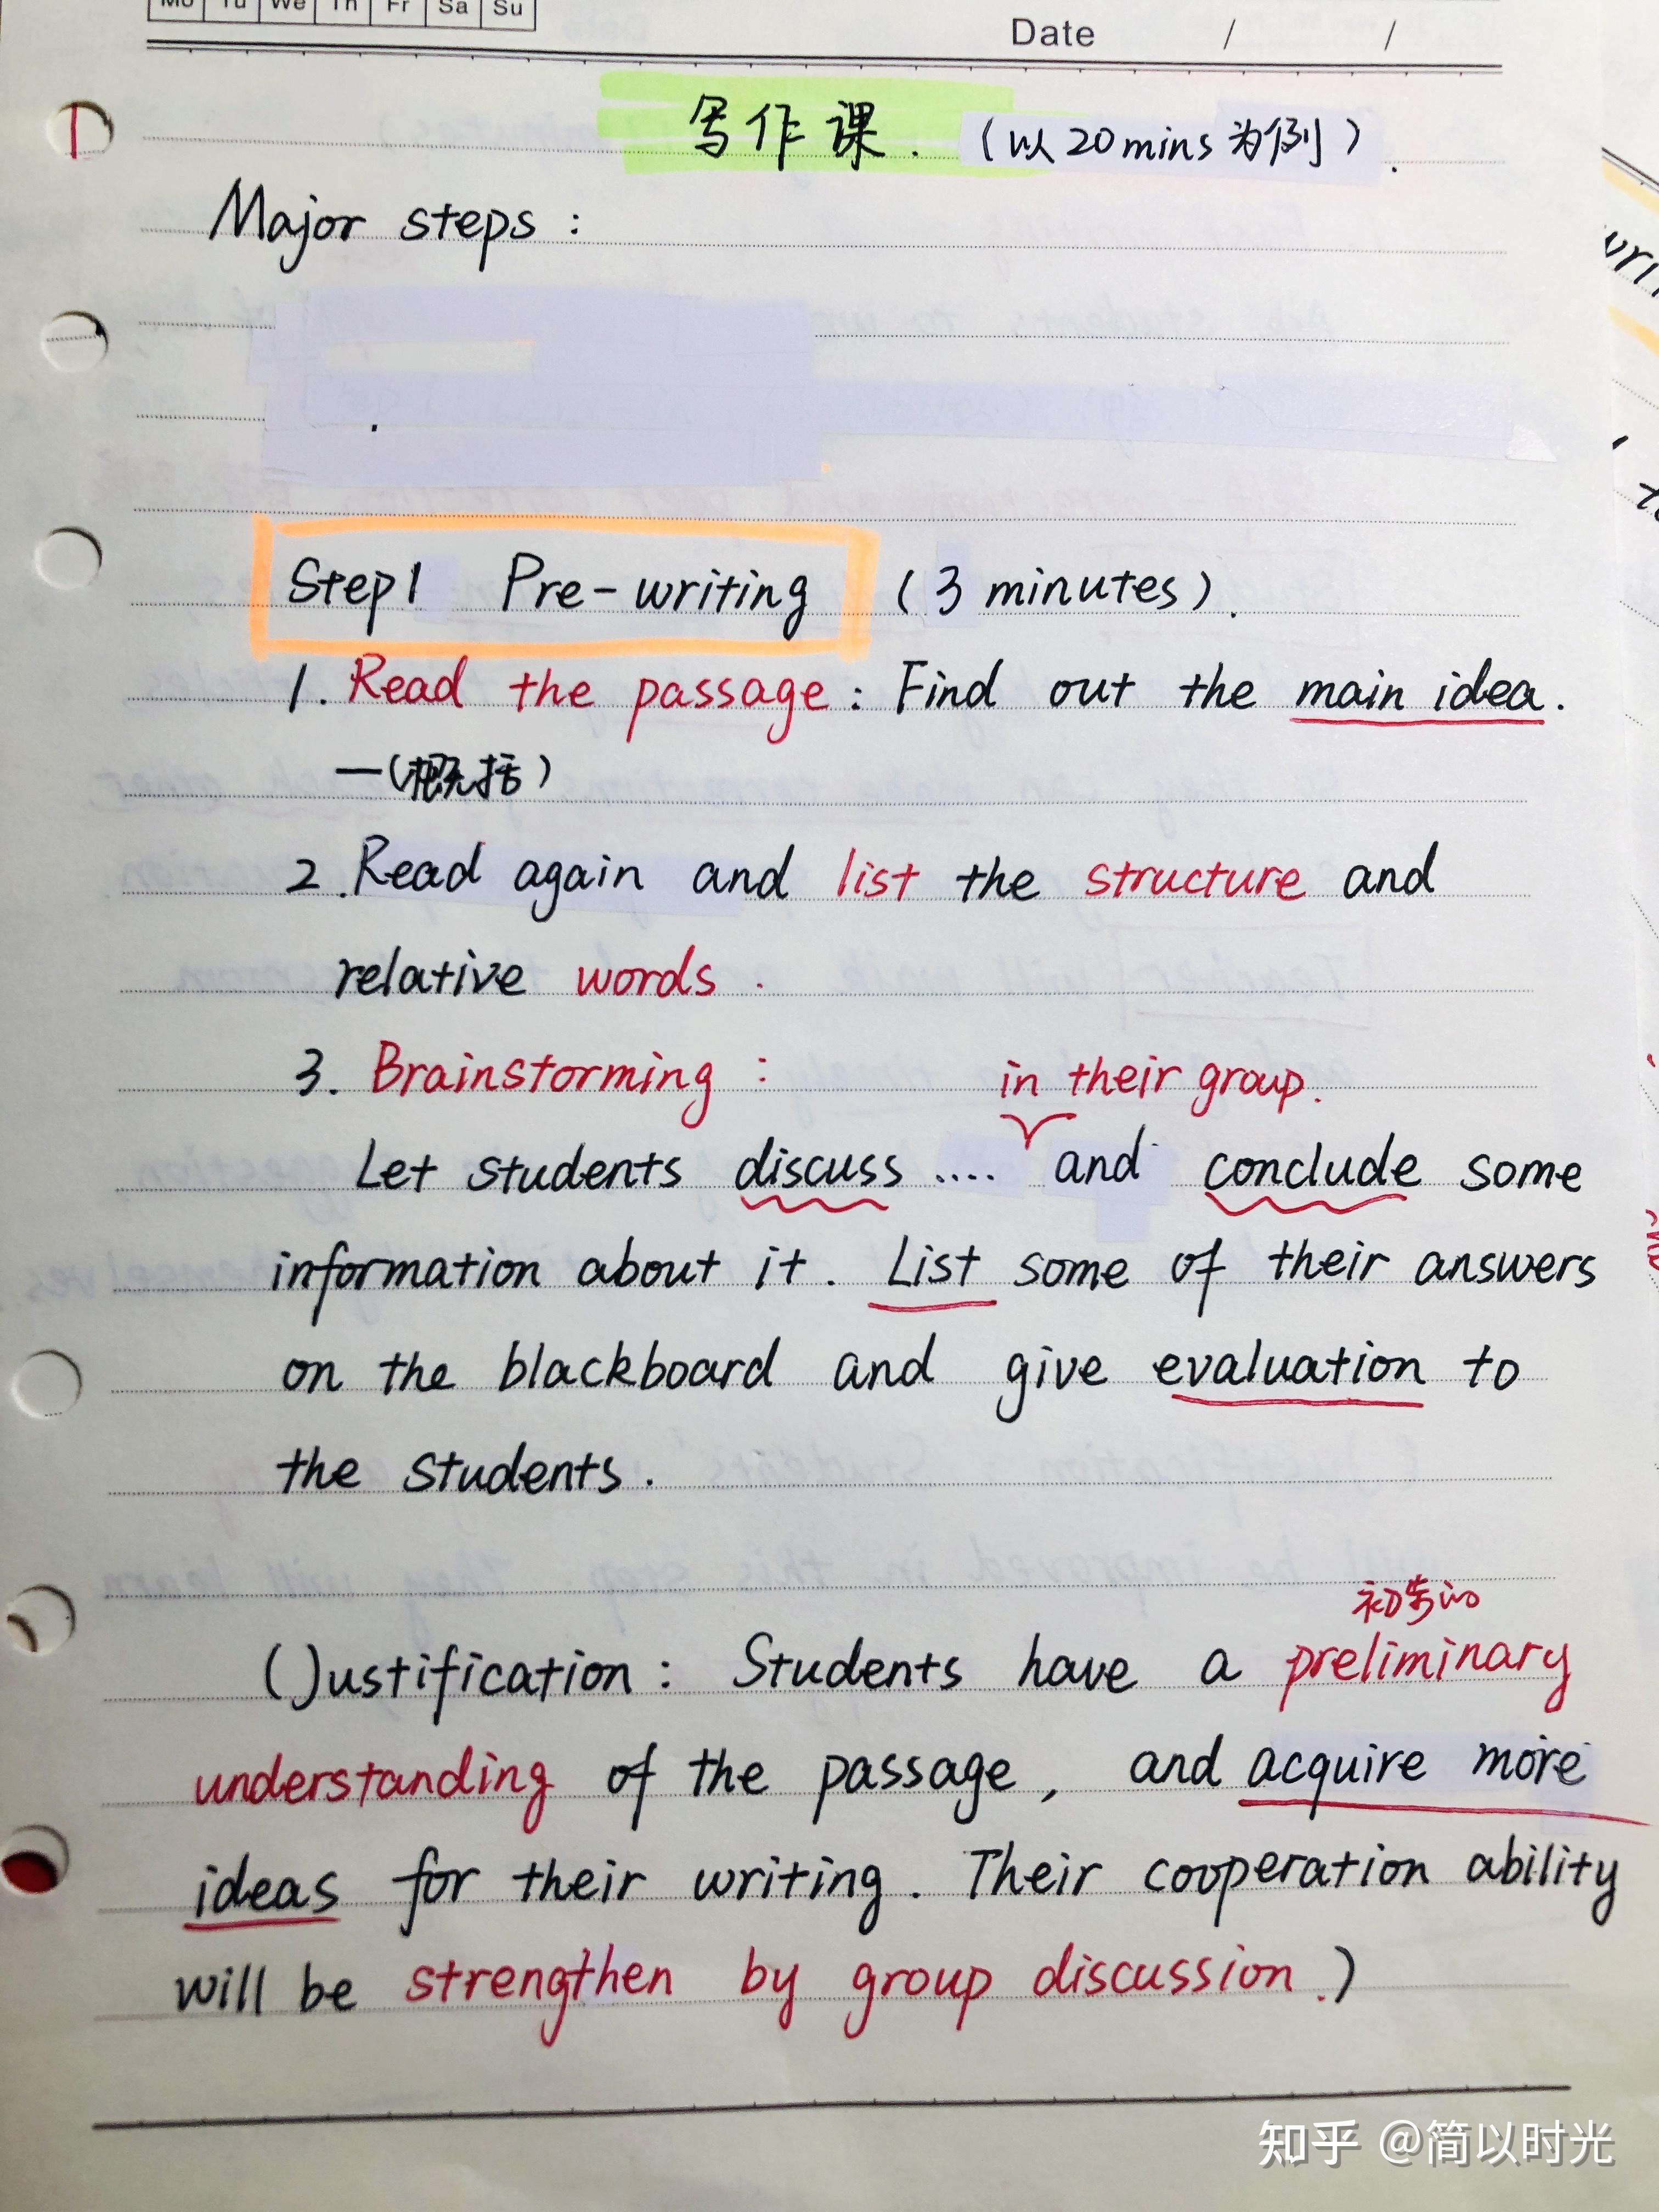 Mo Tu We Th Fr Sa Su
Date / /
写作课. (以20mins为例).
Major steps:
Step1 Pre-writing (3 minutes).
1. Read the passage: Find out the main idea.
—(概括)
2. Read again and list the structure and
relative words.
3. Brainstorming:
in their group.
Let students discuss .... and conclude some
information about it. List some of their answers
on the blackboard and give evaluation to
the students.
初步的
(Justification: Students have a preliminary
understanding of the passage, and acquire more
ideas for their writing. Their cooperation ability
will be strengthen by group discussion.)
知乎 @简以时光